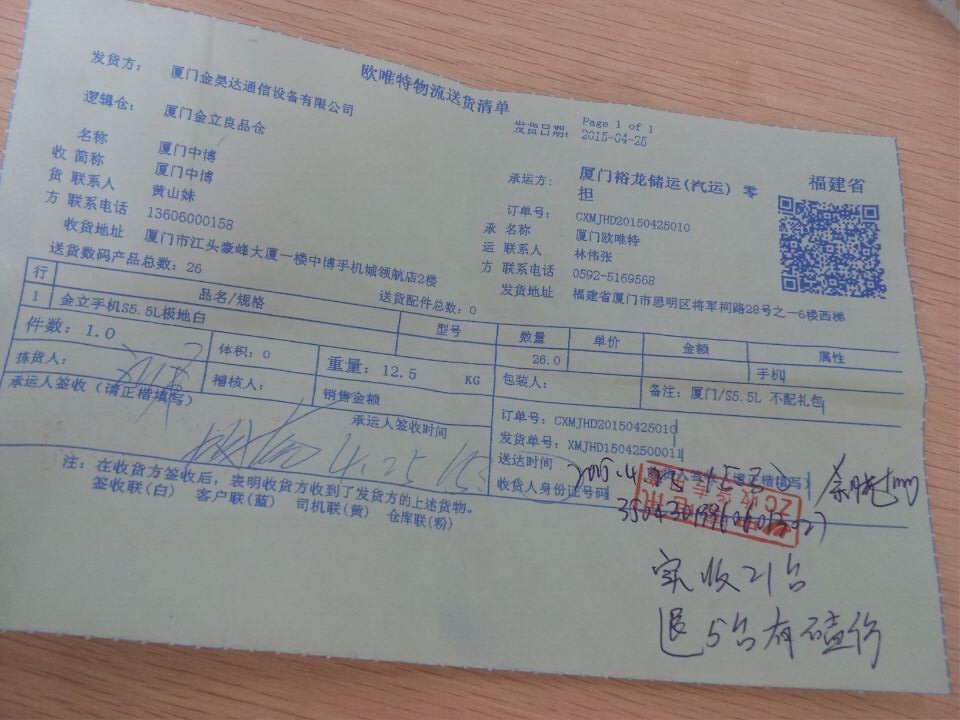 欧唯特物流送货清单
Page 1 of 1
发货日期: 2015-04-25
发货方: 厦门金昊达通信设备有限公司
逻辑仓: 厦门金立良品仓
名称 厦门中博
收 简称 厦门中博
货 联系人 黄山妹
方 联系电话 13606000158
收货地址 厦门市江头豪峰大厦一楼中博手机城领航店2楼
承运方: 厦门裕龙储运(汽运) 零担
福建省
订单号: CXMJHD20150425010
承 名称 厦门欧唯特
运 联系人 林伟张
方 联系电话 0592-5169568
发货地址 福建省厦门市思明区将军祠路28号之一6楼西梯
送货数码产品总数: 26 送货配件总数: 0
行 品名/规格 型号 数量 单价 金额 属性
1 金立手机S5.5L极地白 26.0 手机
件数: 1.0 体积: 0 重量: 12.5 KG 包装人: 备注: 厦门/S5.5L 不配礼包
拣货人: 稽核人: 销售金额
承运人签收 (请正楷填写) 承运人签收时间
4.25
订单号: CXMJHD20150425010
发货单号: XMJHD15042500011
送达时间
收货人身份证号码
注: 在收货方签收后, 表明收货方收到了发货方的上述货物。
签收联(白) 客户联(蓝) 司机联(黄) 仓库联(粉)
实收21台
退5台有磕伤